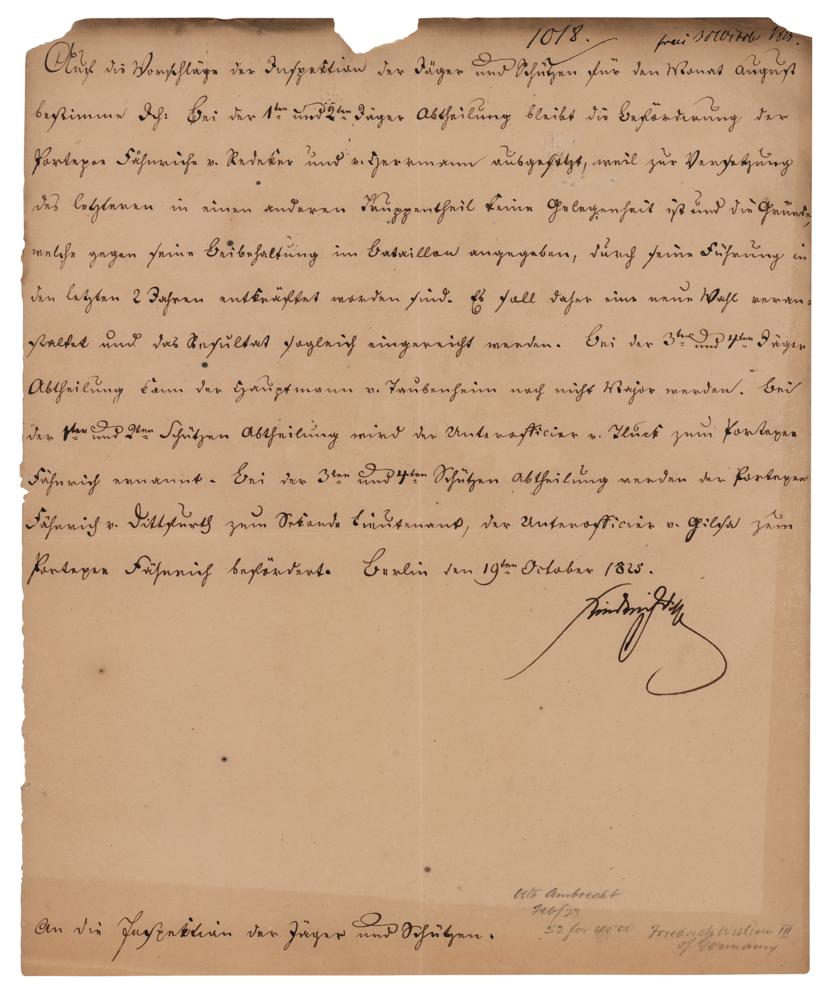 1018.
Auf die Vorschläge der Inspektion der Jäger und Schützen für den Monat August
bestimme Ich: Bei der 1ten und 2ten Jäger Abtheilung bleibt die Beförderung der
Portepee Fähnriche v. Redeker und v. Herrmann ausgesetzt, weil zur Versetzung
des letzteren in einen anderen Truppentheil keine Gelegenheit ist und die Gründe,
welche gegen seine Beibehaltung im Bataillon angegeben, durch seine Führung in
den letzten 2 Jahren entkräftet worden sind. Es soll daher eine neue Wahl veran=
staltet und das Resultat sogleich eingereicht werden. Bei der 3ten und 4ten Jäger
Abtheilung kann der Hauptmann v. Taubenheim noch nicht Major werden. Bei
der 1ten und 2ten Schützen Abtheilung wird der Unterofficier v. Tluck zum Portepee
Fähnrich ernannt. Bei der 3ten und 4ten Schützen Abtheilung werden der Portepee
Fähnrich v. Dittfurth zum Sekonde Lieutenant, der Unterofficier v. Gilsa zum
Portepee Fähnrich befördert. Berlin den 19ten October 1825.
Friedrich Wilh
An die Inspektion der Jäger und Schützen.
Otto Ambrecht
Feb/53
Friedrich William III
of Germany